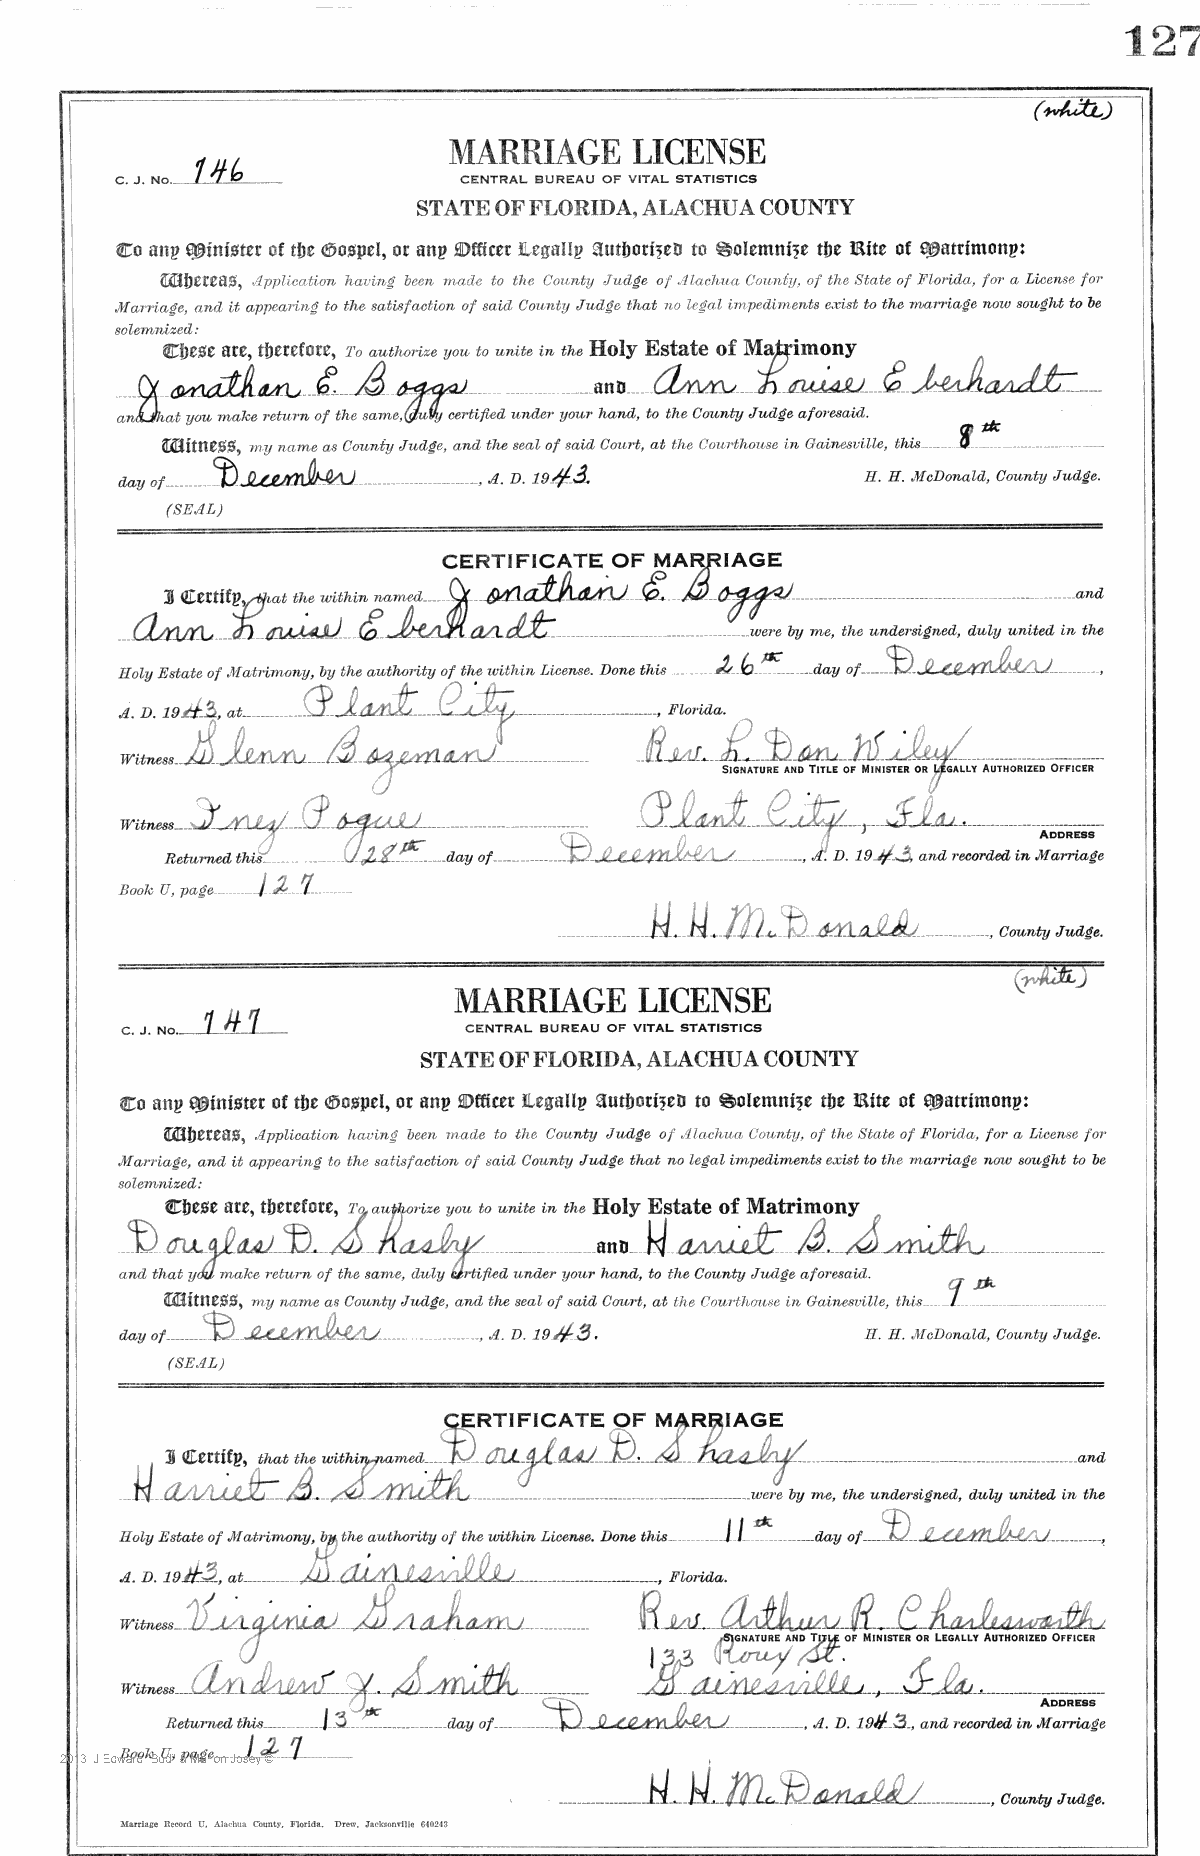 127
(white)
MARRIAGE LICENSE
C. J. No. 746
CENTRAL BUREAU OF VITAL STATISTICS
STATE OF FLORIDA, ALACHUA COUNTY
To any Minister of the Gospel, or any Officer Legally Authorized to Solemnize the Rite of Matrimony:
Whereas, Application having been made to the County Judge of Alachua County, of the State of Florida, for a License for
Marriage, and it appearing to the satisfaction of said County Judge that no legal impediments exist to the marriage now sought to be
solemnized:
These are, therefore, To authorize you to unite in the Holy Estate of Matrimony
Jonathan E. Boggs and Ann Louise Eberhardt
and that you make return of the same, duly certified under your hand, to the County Judge aforesaid.
Witness, my name as County Judge, and the seal of said Court, at the Courthouse in Gainesville, this 8th
day of December, A. D. 1943. H. H. McDonald, County Judge.
(SEAL)
CERTIFICATE OF MARRIAGE
I Certify, that the within named Jonathan E. Boggs and
Ann Louise Eberhardt were by me, the undersigned, duly united in the
Holy Estate of Matrimony, by the authority of the within License. Done this 26th day of December,
A. D. 1943, at Plant City, Florida.
Witness Glenn Bozeman Rev. L. Don Wiley
SIGNATURE AND TITLE OF MINISTER OR LEGALLY AUTHORIZED OFFICER
Witness Inez Pogue Plant City, Fla.
ADDRESS
Returned this 28th day of December, A. D. 1943, and recorded in Marriage
Book U, page 127
H. H. McDonald, County Judge.
(white)
MARRIAGE LICENSE
C. J. No. 747
CENTRAL BUREAU OF VITAL STATISTICS
STATE OF FLORIDA, ALACHUA COUNTY
To any Minister of the Gospel, or any Officer Legally Authorized to Solemnize the Rite of Matrimony:
Whereas, Application having been made to the County Judge of Alachua County, of the State of Florida, for a License for
Marriage, and it appearing to the satisfaction of said County Judge that no legal impediments exist to the marriage now sought to be
solemnized:
These are, therefore, To authorize you to unite in the Holy Estate of Matrimony
Douglas D. Shasby and Harriet B. Smith
and that you make return of the same, duly certified under your hand, to the County Judge aforesaid.
Witness, my name as County Judge, and the seal of said Court, at the Courthouse in Gainesville, this 9th
day of December, A. D. 1943. H. H. McDonald, County Judge.
(SEAL)
CERTIFICATE OF MARRIAGE
I Certify, that the within named Douglas D. Shasby and
Harriet B. Smith were by me, the undersigned, duly united in the
Holy Estate of Matrimony, by the authority of the within License. Done this 11th day of December,
A. D. 1943, at Gainesville, Florida.
Witness Virginia Graham Rev. Arthur R. Charlesworth
SIGNATURE AND TITLE OF MINISTER OR LEGALLY AUTHORIZED OFFICER
133 Roux St.
Witness Andrew J. Smith Gainesville, Fla.
ADDRESS
Returned this 13th day of December, A. D. 1943, and recorded in Marriage
Book U, page 127
2013 J Edward "Bud" Josey ©
H. H. McDonald, County Judge.
Marriage Record U, Alachua County, Florida. Drew, Jacksonville 640243